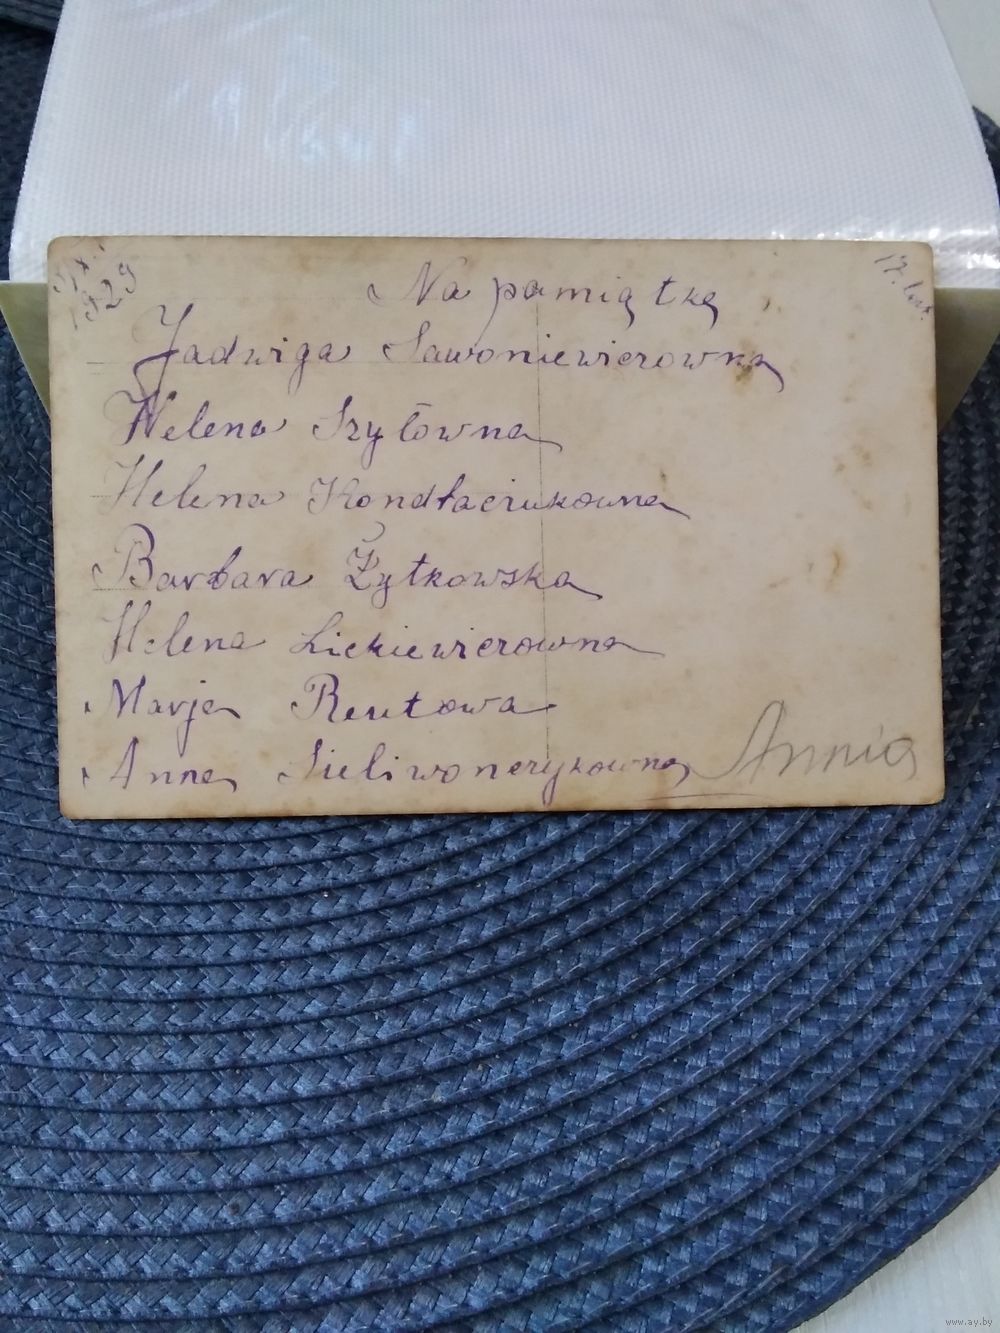 1929
17. lat.
Na pamiątkę
Jadwiga Sawoniewiczówna
Helena Szyłówna
Helena Kondłaciukówna
Barbara Żytkowska
Helena Lickiewiczówna
Marja Reutowa
Anna Sieliwonczykowna
Annia
www.ay.by